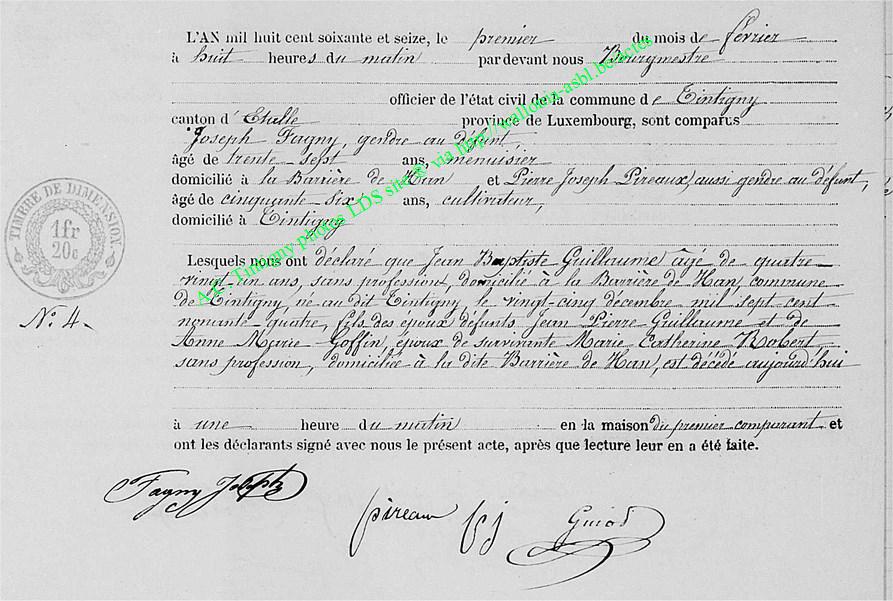 L'AN mil huit cent soixante et seize, le premier du mois de février
à huit heures du matin pardevant nous Bourgmestre
officier de l'état civil de la commune de Tintigny
canton d'Etalle province de Luxembourg, sont comparus
Joseph Fagny, gendre au défunt,
âgé de trente sept ans, menuisier
domicilié à la Barrière de Han et Pierre Joseph Pireaux, aussi gendre au défunt,
âgé de cinquante-six ans, cultivateur,
domicilié à Tintigny
Lesquels nous ont déclaré que Jean Baptiste Guillaume âgé de quatre-
vingt-un ans, sans profession, domicilié à la Barrière de Han, commune
de Tintigny, né au dit Tintigny, le vingt-cinq décembre mil sept cent
nonante quatre, fils des époux défunts Jean Pierre Guillaume et de
Anne Marie Goffin, époux de survivante Marie Catherine Robert,
sans profession, domiciliée à la dite Barrière de Han, est décédé aujourd'hui
à une heure du matin en la maison du premier comparant et
ont les déclarants signé avec nous le présent acte, après que lecture leur en a été faite.
TIMBRE DE DIMENSION
1 fr
20 c
N° 4
Fagny Joseph
pireaux pj Guiod
A.C. Tintigny photos LDS site® via http://wallonia-asbl.be/actes